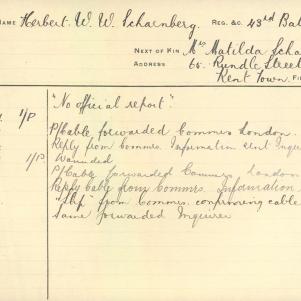 NAME Herbert. W. W. Schaenberg. REG. &C. 43rd Bat
NEXT OF KIN Mrs Matilda Scha
ADDRESS 65. Rundle Street
Kent Town. FI
1/P "No official report".
P/Cable forwarded Commrs London.
Reply from Commrs. Information sent Inqu
1/P Wounded
P/Cable forwarded Commrs London
Reply Cable from Commrs. Information
"Slip" from Commrs. confirming cable
Same forwarded Inquirer